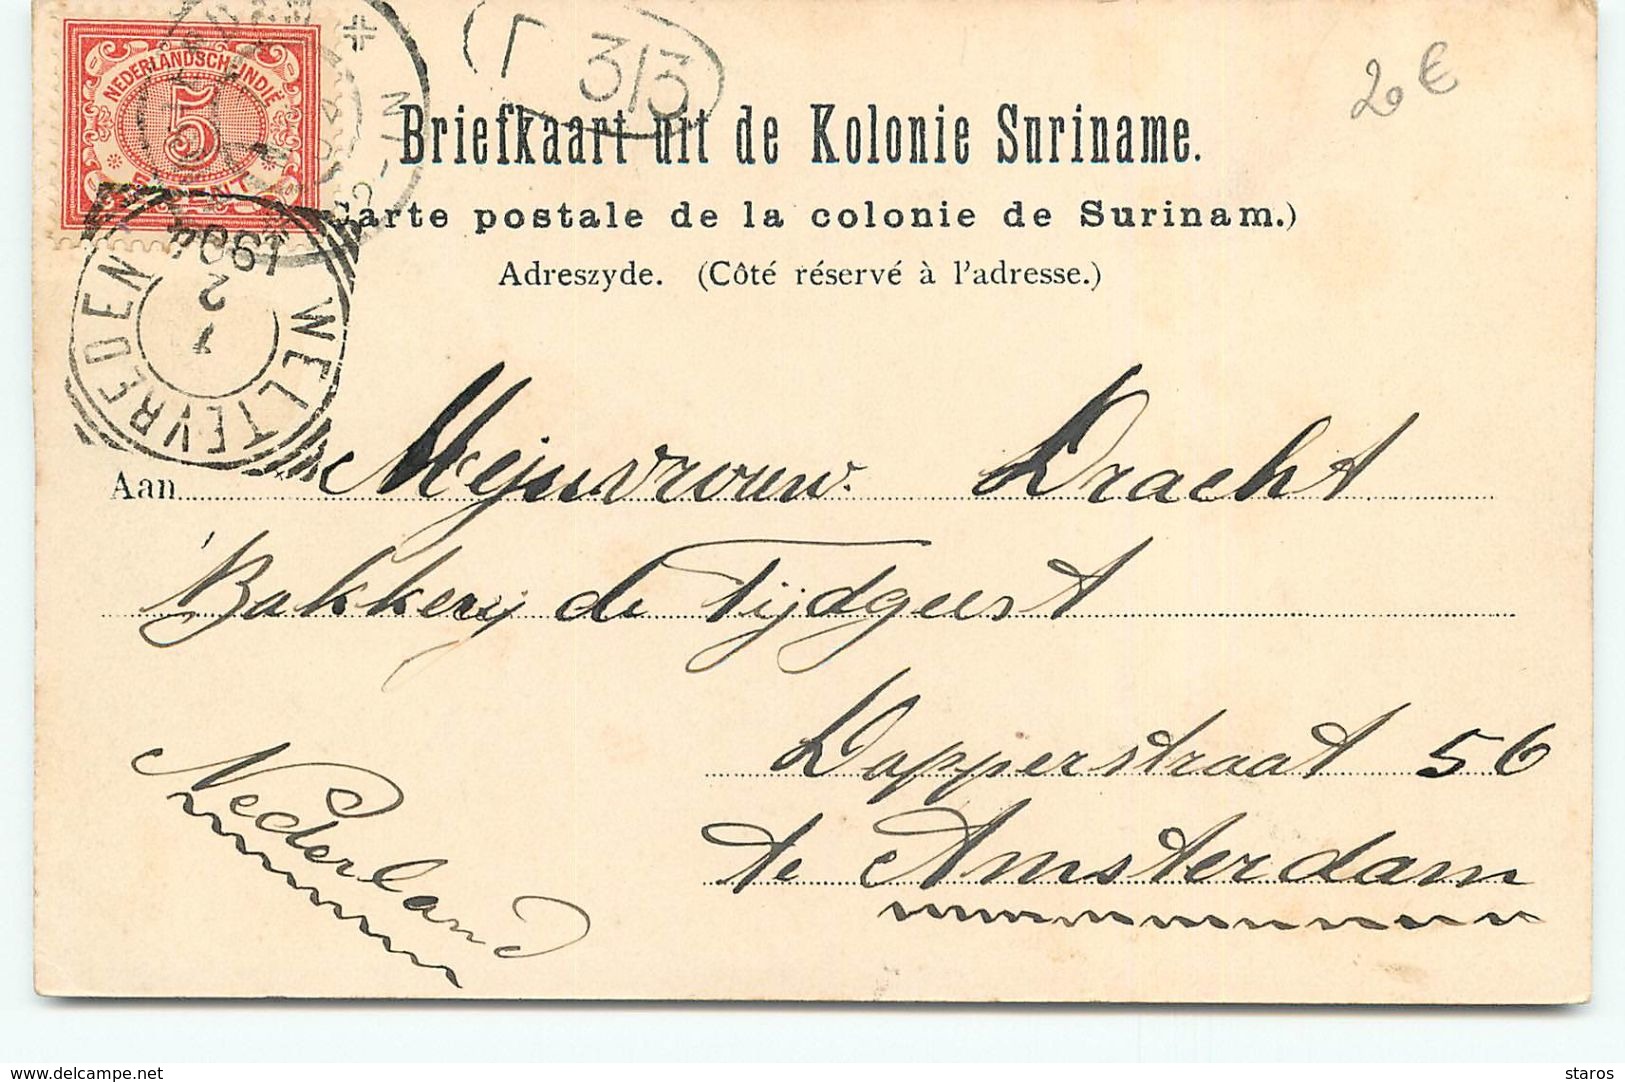 NEDERLANDSCH-INDIË
5
CENT
L 313
20 €
Briefkaart uit de Kolonie Suriname.
Carte postale de la colonie de Surinam.)
Adreszyde. (Côté réservé à l'adresse.)
WELTEVREDEN
1
2
1904
Aan Mejuvrouw. Dracht
Bakkery de Tijdgeest
Dapperstraat 56
te Amsterdam
Nederland
www.delcampe.net
staros